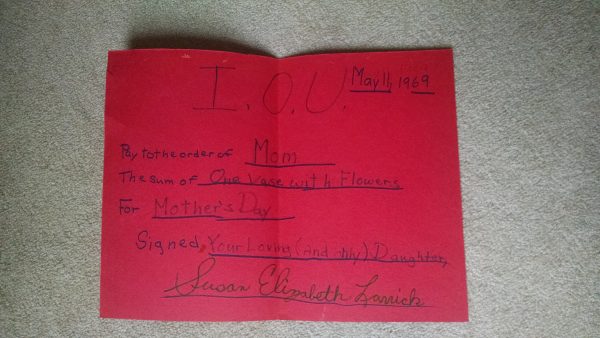 I.O.U.
May 11, 1969
Pay to the order of Mom
The sum of One Vase with Flowers
For Mother's Day
Signed, Your Loving (and only) Daughter,
Susan Elizabeth Larrick